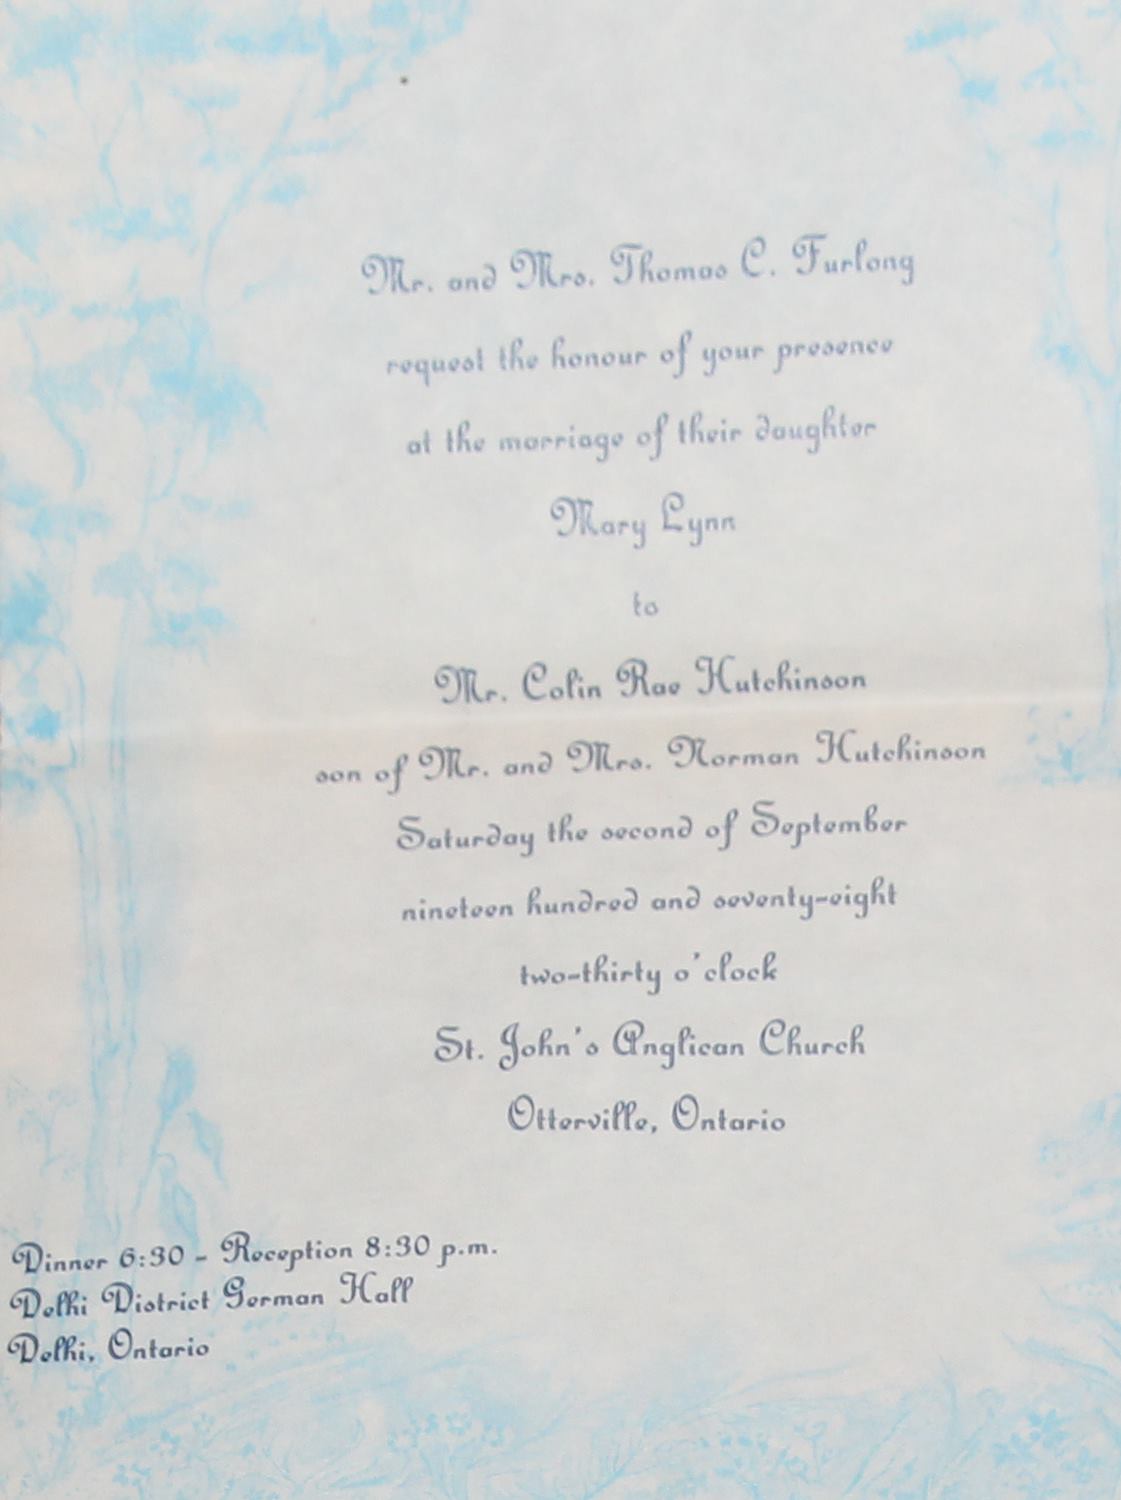 Mr. and Mrs. Thomas C. Furlong
request the honour of your presence
at the marriage of their daughter
Mary Lynn
to
Mr. Colin Rae Hutchinson
son of Mr. and Mrs. Norman Hutchinson
Saturday the second of September
nineteen hundred and seventy-eight
two-thirty o'clock
St. John's Anglican Church
Otterville, Ontario
Dinner 6:30 - Reception 8:30 p.m.
Delhi District German Hall
Delhi, Ontario